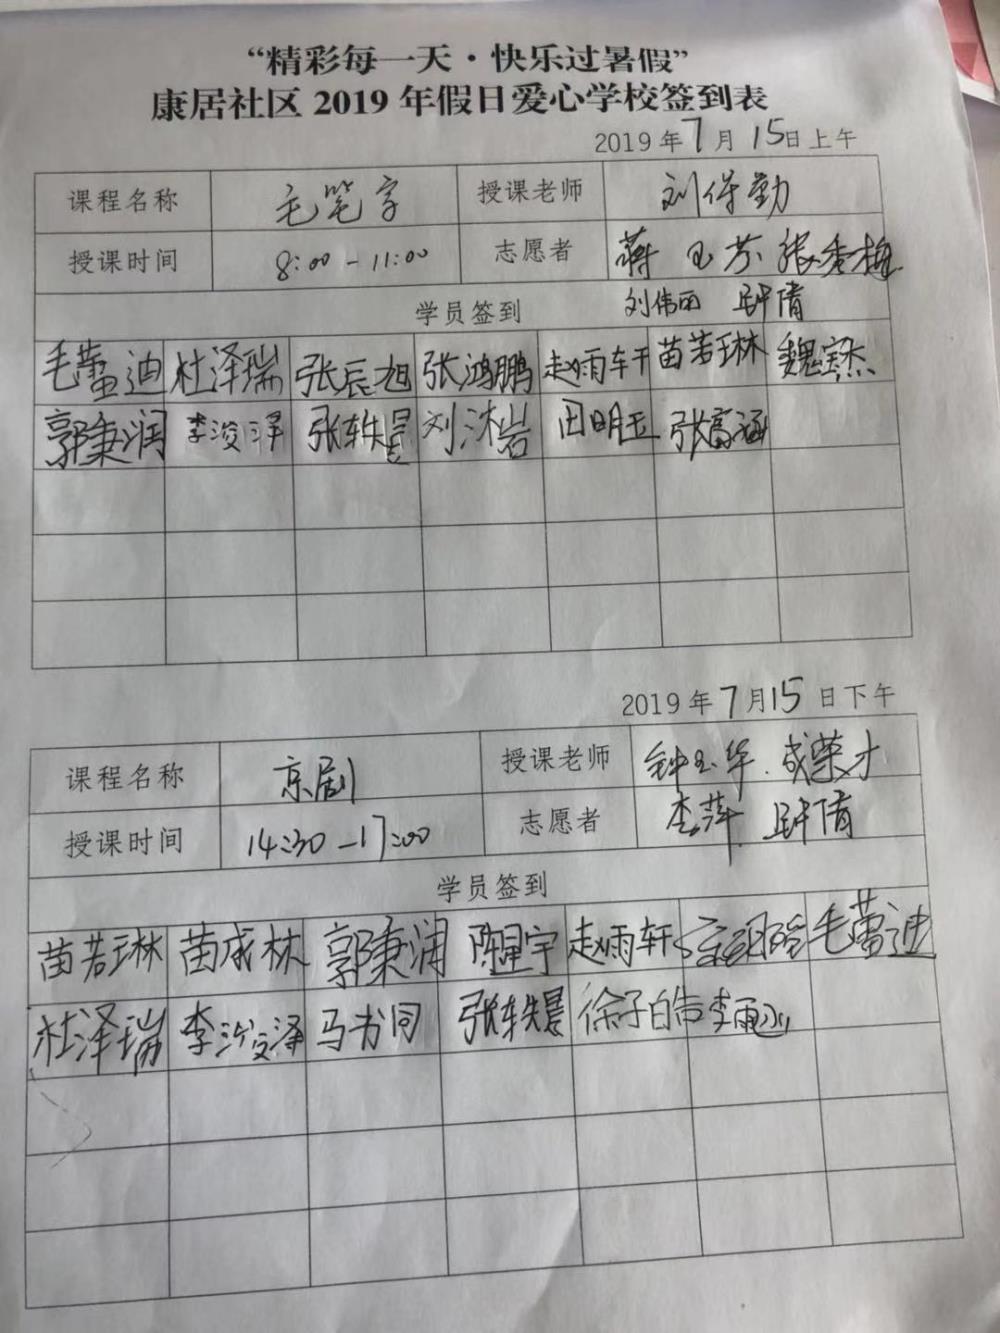 “精彩每一天·快乐过暑假”
康居社区 2019 年假日爱心学校签到表
2019 年 7 月 15 日上午
课程名称 毛笔字 授课老师 刘保勤
授课时间 8:00-11:00 志愿者 蒋玉芬 张秀梅
学员签到 刘伟 倩
毛蕾迪 杜泽瑞 张辰旭 张鸿鹏 赵雨轩 苗若琳 魏宝杰
郭秉润 李浚泽 张轶昊 刘沐岩 田明玉 张富涵
2019 年 7 月 15 日下午
课程名称 京剧 授课老师 钟玉华. 成荣才
授课时间 14:30-17:00 志愿者 李萍. 倩
学员签到
苗若琳 苗成林 郭秉润 陈星宇 赵雨轩 毛蕾迪
杜泽瑞 李浚泽 马书同 张轶 徐子皓 李雨